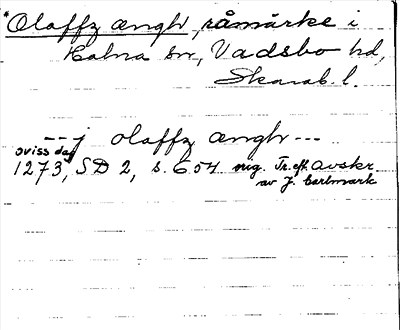 *Olaffz ængh, råmärke i
Halna sn, Vadsbo hd,
Skarab. l.
--- j olaffz ængh ---
oviss dag
1273, SD 2, s. 654 orig. Tr. eft. avskr.
av J. Carlmark